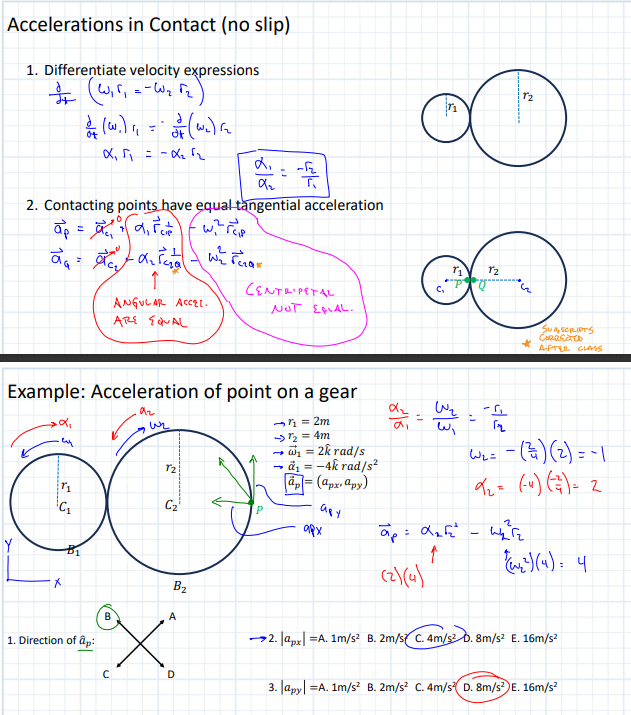 Accelerations in Contact (no slip)
1. Differentiate velocity expressions
d/dt (ω₁r₁ = -ω₂r₂)
d/dt (ω₁) r₁ = -d/dt (ω₂) r₂
α₁r₁ = -α₂r₂
α₁/α₂ = -r₂/r₁
r₁
r₂
2. Contacting points have equal tangential acceleration
a⃗ₚ = a⃗c₁⁰ + α₁r⃗c₁p^⊥ - ω₁² r⃗c₁p
a⃗Q = a⃗c₂⁰ - α₂r⃗c₂Q^⊥ - ω₂² r⃗c₂Q
ANGULAR ACCEL.
ARE EQUAL
CENTRIPETAL
NOT EQUAL.
r₁ r₂
C₁ P Q C₂
SUBSCRIPTS
CORRECTED
AFTER CLASS
Example: Acceleration of point on a gear
α₁
ω₁
α₂
ω₂
r₁
C₁
B₁
r₂
C₂
B₂
P
Y
X
apy
apx
r₁ = 2m
r₂ = 4m
ω⃗₁ = 2k̂ rad/s
α⃗₁ = −4k̂ rad/s²
a⃗ₚ = (aₚₓ, aₚᵧ)
α₂/α₁ = ω₂/ω₁ = -r₁/r₂
ω₂ = -(2/4)(2) = -1
α₂ = (-4)(-2/4) = 2
a⃗ₚ = α₂r₂^⊥ - ω₂²r₂
(2)(4)
(ω₂²)(4) = 4
1. Direction of âₚ:
B
A
C
D
2. |aₚₓ| =A. 1m/s² B. 2m/s² C. 4m/s² D. 8m/s² E. 16m/s²
3. |aₚᵧ| =A. 1m/s² B. 2m/s² C. 4m/s² D. 8m/s² E. 16m/s²